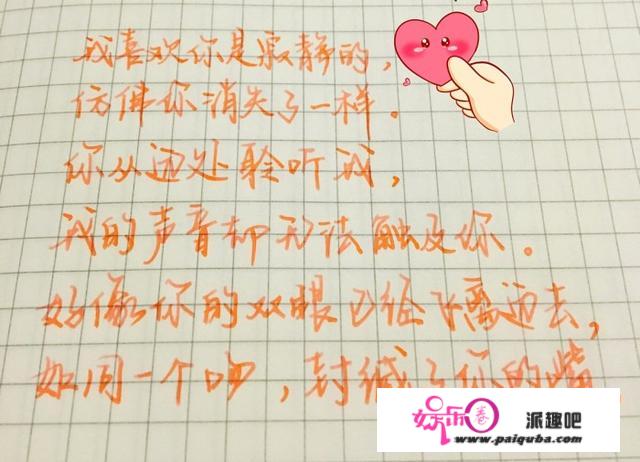 我喜欢你是寂静的，
仿佛你消失了一样。
你从远处聆听我，
我的声音却无法触及你。
好像你的双眼已经飞离远去，
如同一个吻，封缄了你的嘴
娱乐圈 派趣吧
www.paiquba.com